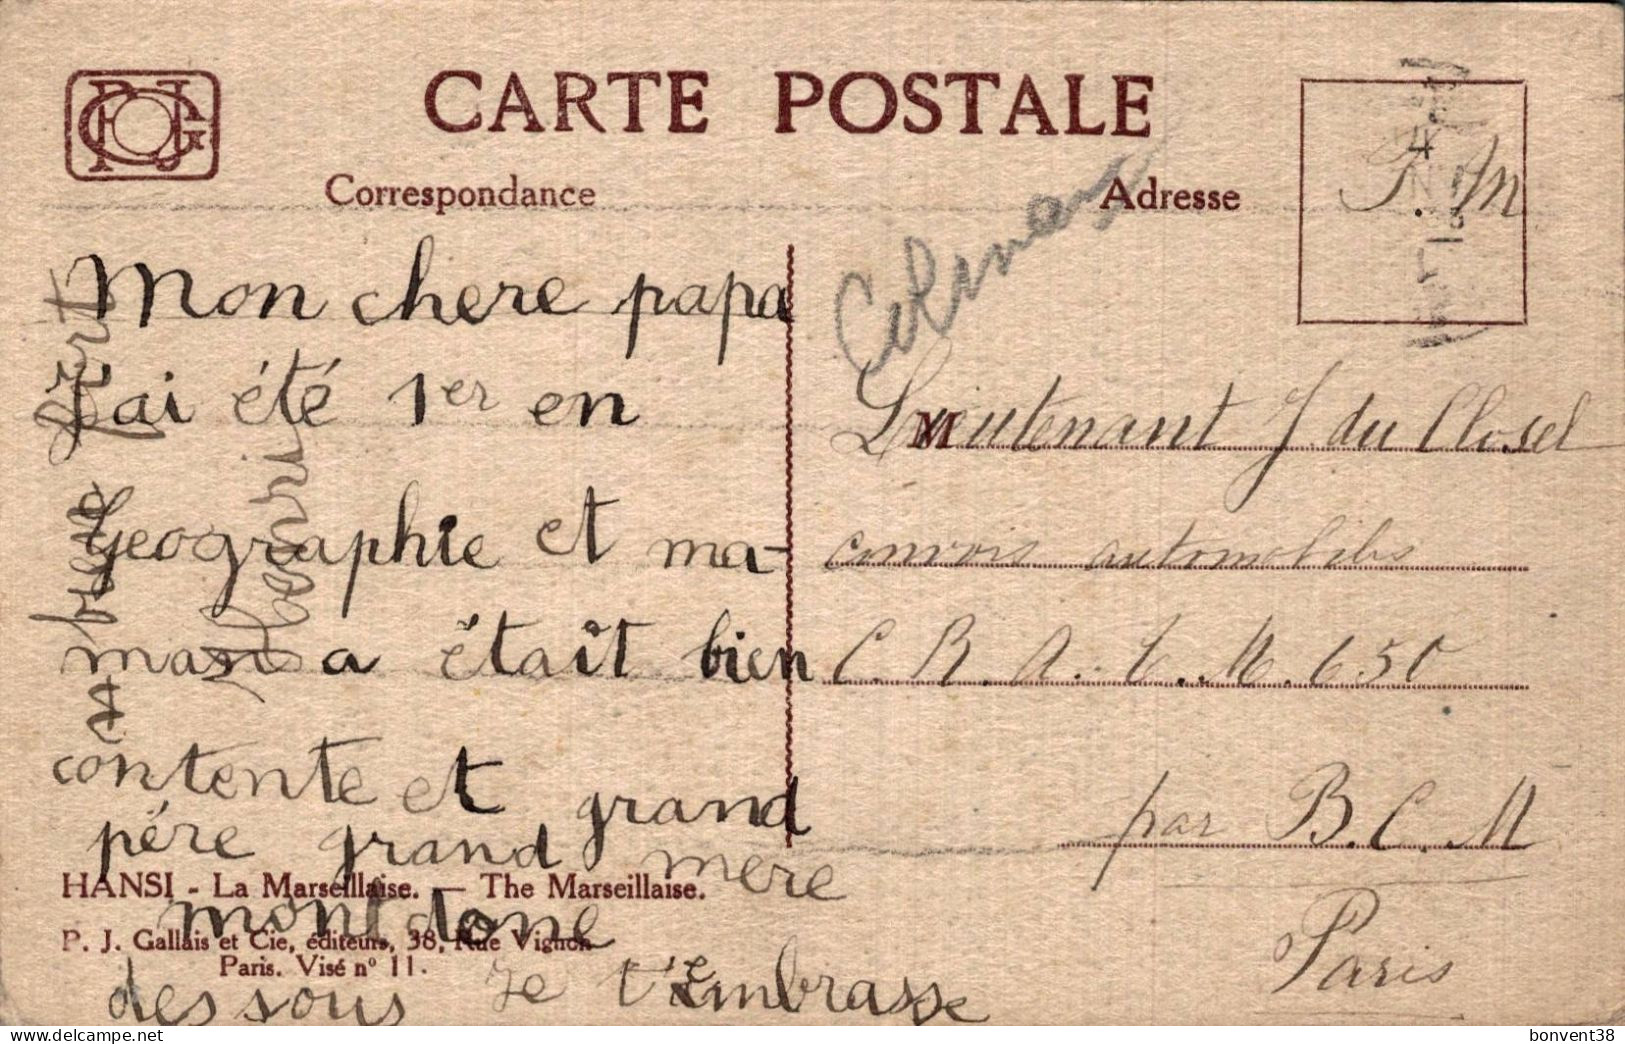 CARTE POSTALE
Correspondance
Adresse
F. M
Colmar
Mon chere papa
J'ai été 1er en
Geographie et ma-
man a était bien
contente et grand
père grand mère
mont done
des sous je t'Embrasse
Lieutenant J. du Closel
M
convois automobiles
C. R. A. T. M. 650
par B. C. M
Paris
HANSI - La Marseillaise. — The Marseillaise.
P. J. Gallais et Cie, éditeurs, 38, Rue Vignon
Paris. Visé nº 11.
bonvent38